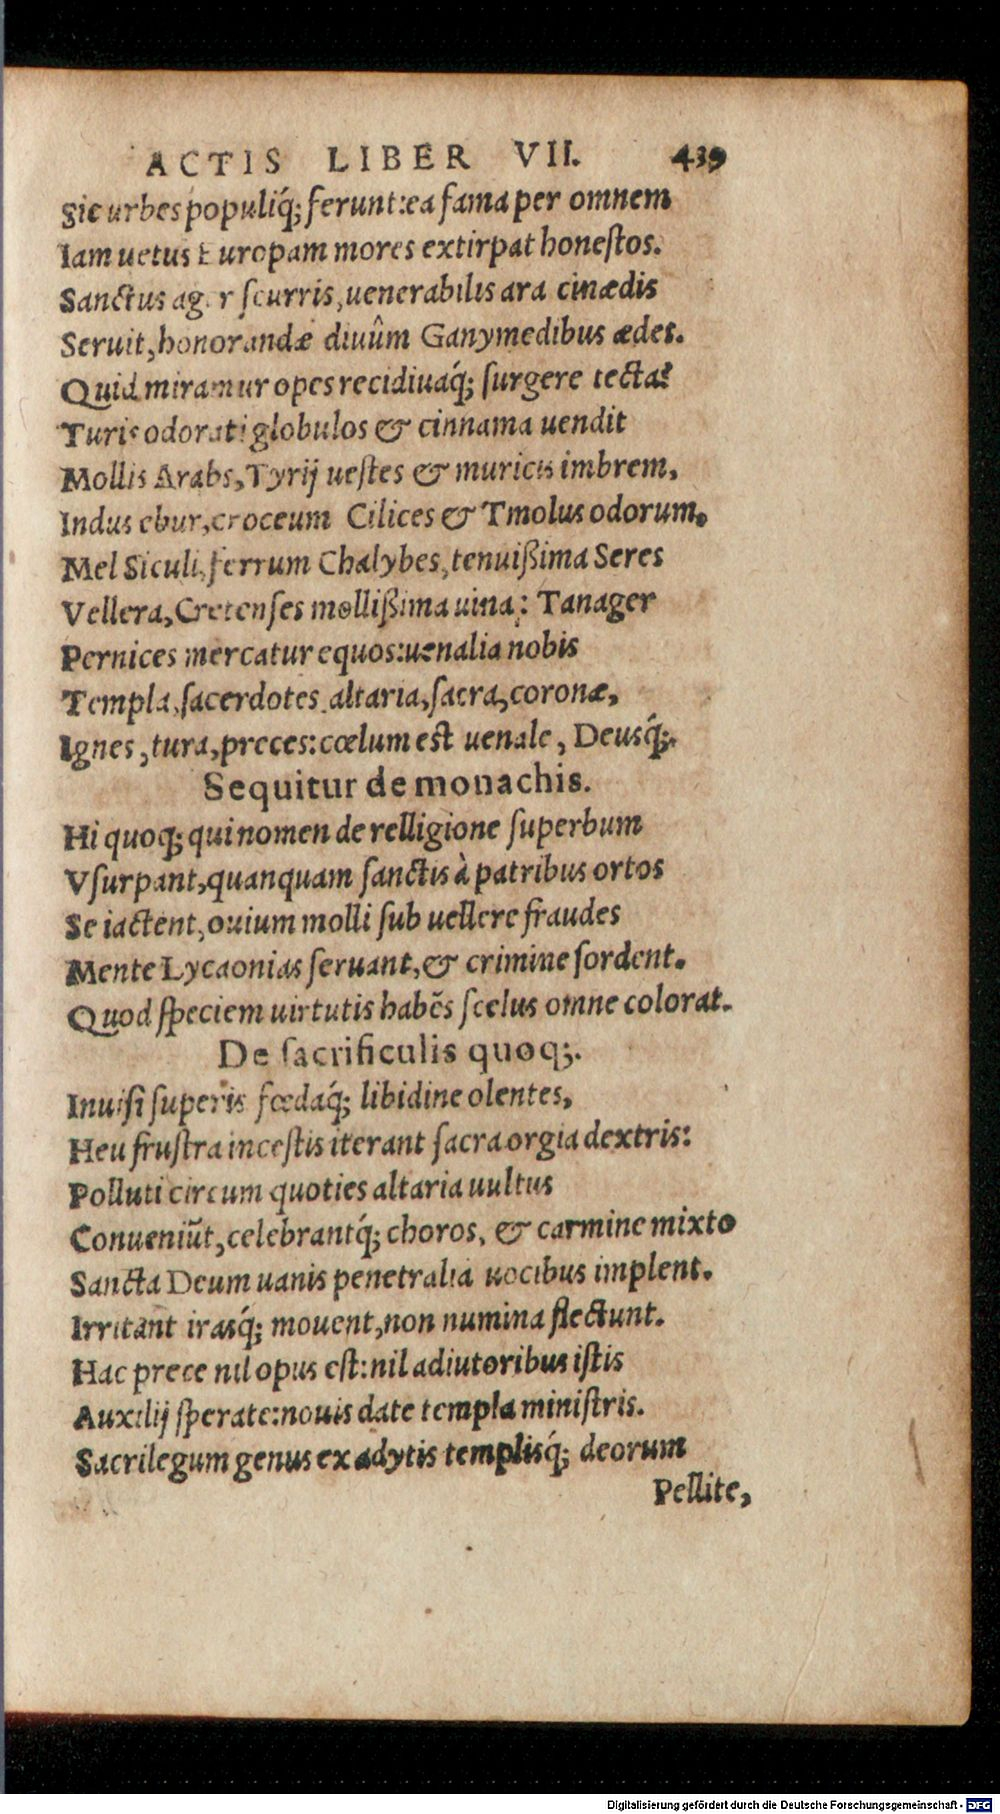 ACTIS LIBER VII. 439
gie urbes populiq́; ferunt: ea fama per omnem
Iam uetus Europam mores extirpat honeſtos.
Sanctus ager ſcurris, uenerabilis ara cinædis
Seruit, honorandæ diuûm Ganymedibus ædes.
Quid miramur opes recidiuaq́; ſurgere tecta?
Turis odorati globulos & cinnama uendit
Mollis Arabs, Tyrij ueſtes & muricis imbrem,
Indus ebur, croceum Cilices & Tmolus odorum.
Mel Siculi, ferrum Chalybes, tenuißima Seres
Vellera, Cretenſes mollißima uina: Tanager
Pernices mercatur equos: uenalia nobis
Templa, ſacerdotes altaria, ſacra, coronæ,
Ignes, tura, preces: cœlum est uenale, Deusq́;.
Sequitur de monachis.
Hi quoq; qui nomen de relligione ſuperbum
Vſurpant, quanquam ſanctis à patribus ortos
Se iactent, ouium molli ſub uellere fraudes
Mente Lycaonias ſeruant, & crimine ſordent.
Quod ſpeciem uirtutis habēs ſcelus omne colorat.
De ſacrificulis quoq;.
Inuiſi ſuperis fœdaq́; libidine olentes,
Heu fruſtra inceſtis iterant ſacra orgia dextris:
Polluti circum quoties altaria uultus
Conueniūt, celebrantq́; choros, & carmine mixto
Sancta Deum uanis penetralia uocibus implent.
Irritant irasq́; mouent, non numina flectunt.
Hac prece nil opus eſt: nil adiutoribus iſtis
Auxilij ſperate: nouis date templa miniſtris.
Sacrilegum genus ex adytis templisq́; deorum
Pellite,
Digitalisierung gefördert durch die Deutsche Forschungsgemeinschaft - DFG